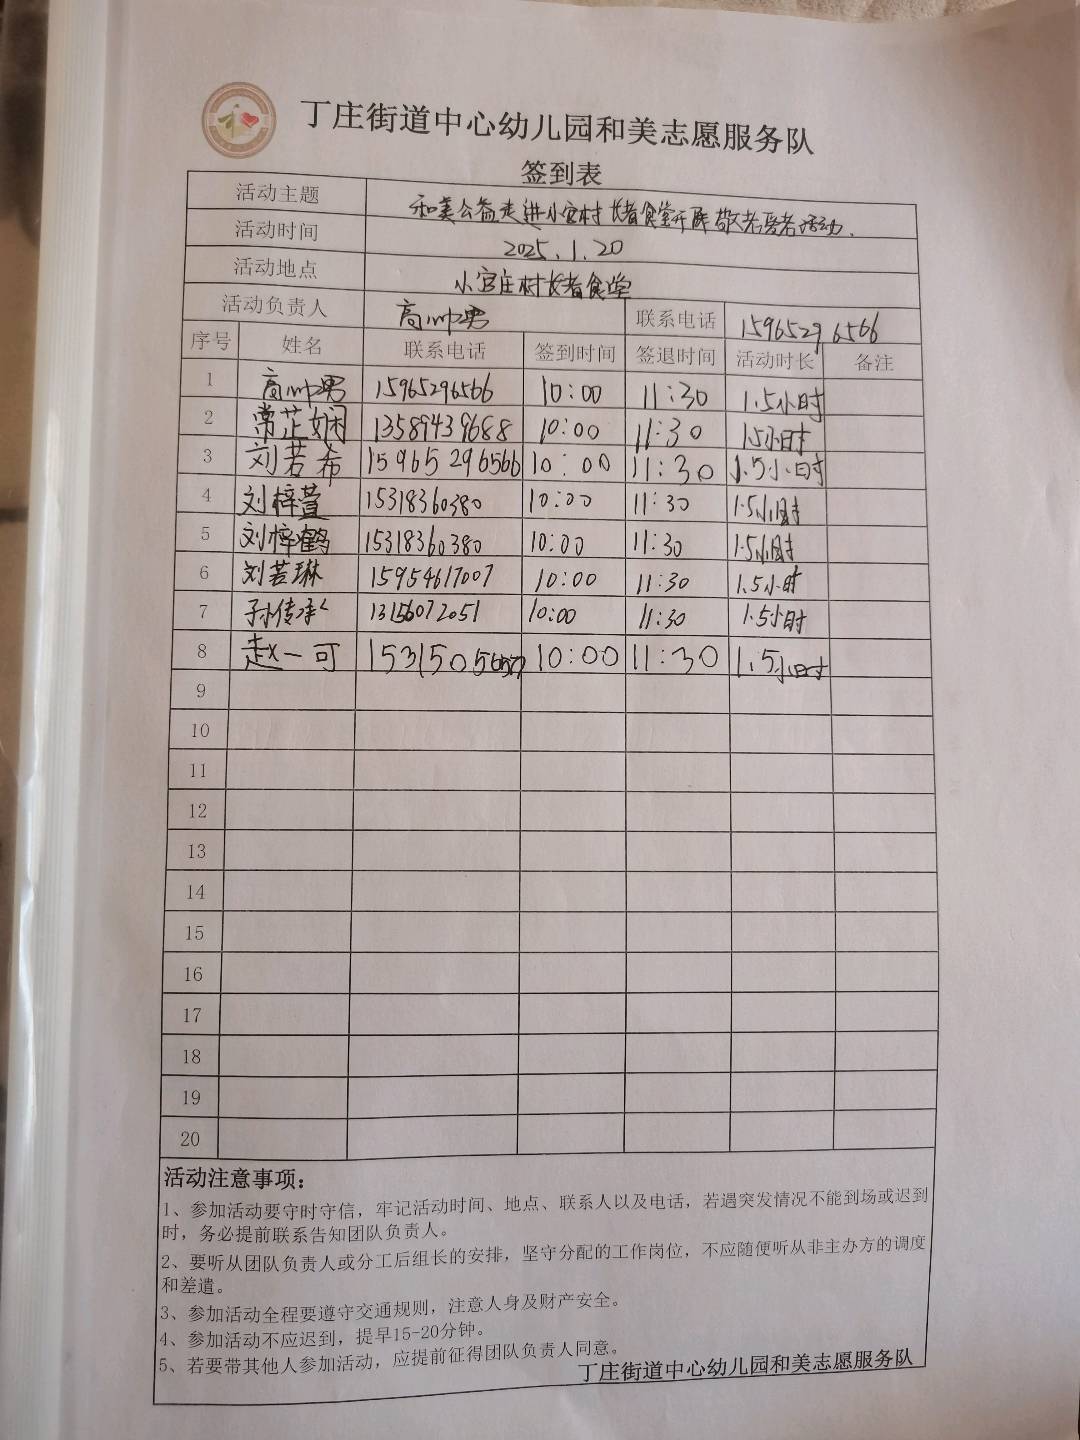 丁庄街道中心幼儿园和美志愿服务队
签到表
活动主题 和美公益走进小官村长者食堂开展敬老爱老活动.
活动时间 2025.1.20
活动地点 小官庄村长者食堂
活动负责人 高帅男 联系电话 15965296566
序号 姓名 联系电话 签到时间 签退时间 活动时长 备注
1 高帅男 15965296566 10:00 11:30 1.5小时
2 常芷娴 13589439688 10:00 11:30 1.5小时
3 刘若希 15965296566 10:00 11:30 1.5小时
4 刘梓萱 15318360380 10:00 11:30 1.5小时
5 刘梓鹤 15318360380 10:00 11:30 1.5小时
6 刘若琳 15954617007 10:00 11:30 1.5小时
7 孙传承 13156072051 10:00 11:30 1.5小时
8 赵一可 10:00 11:30 1.5小时
9
10
11
12
13
14
15
16
17
18
19
20
活动注意事项：
1、参加活动要守时守信，牢记活动时间、地点、联系人以及电话，若遇突发情况不能到场或迟到
时，务必提前联系告知团队负责人。
2、要听从团队负责人或分工后组长的安排，坚守分配的工作岗位，不应随便听从非主办方的调度
和差遣。
3、参加活动全程要遵守交通规则，注意人身及财产安全。
4、参加活动不应迟到，提早15-20分钟。
5、若要带其他人参加活动，应提前征得团队负责人同意。
丁庄街道中心幼儿园和美志愿服务队